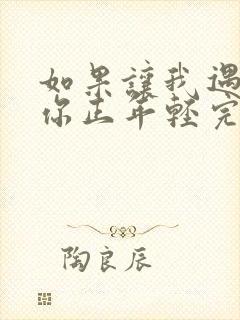 如果讓我遇
你正年輕完
陶良辰